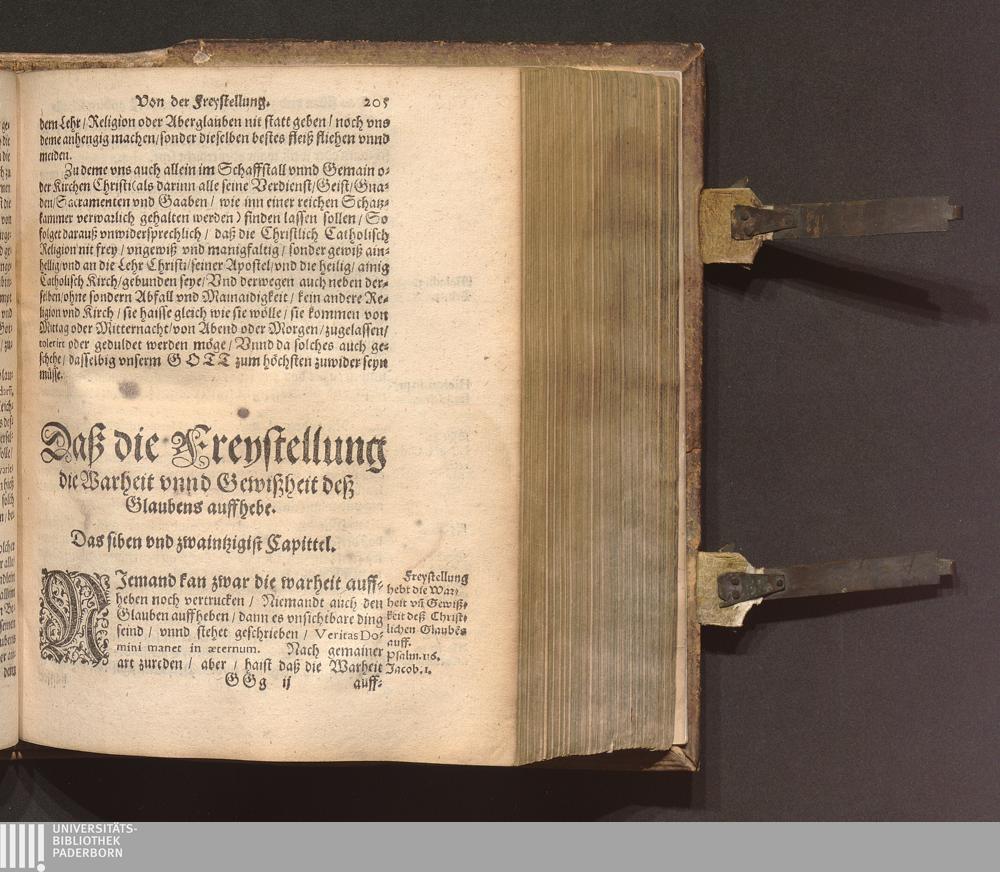 Von der Freystellung. 205
dern Lehr / Religion oder Aberglauben nit statt geben / noch vns
deme anhengig machen / sonder dieselben bestes fleiß fliehen vnnd
meiden.
Zu deme vns auch allein im Schaffstall vnnd Gemain o⸗
der Kirchen Christi (als darinn alle seine Verdienst / Geist / Gna⸗
den / Sacramenten vnd Gaaben / wie inn einer reichen Schatz⸗
kammer verwarlich gehalten werden) finden lassen sollen / So
folget darauß vnwidersprechlich / daß die Christlich Catholisch
Religion nit frey / vngewiß vnd manigfaltig / sonder gewiß ain⸗
hellig / vnd an die Lehr Christi / seiner Apostel / vnd die heilig / ainig
Catholisch Kirch / gebunden seye / Vnd derwegen auch neben der⸗
selben / ohne sondern Abfall vnd Mainaidigkeit / kein andere Re⸗
ligion vnd Kirch / sie haisse gleich wie sie wölle / sie kommen von
Mittag oder Mitternacht / von Abend oder Morgen / zugelassen /
tolerirt oder geduldet werden möge / Vnnd da solches auch ge⸗
schehe / dasselbig vnserm GOTT zum höchsten zuwider seyn
müsse.
Daß die Freystellung
die Warheit vnnd Gewißheit deß
Glaubens auffhebe.
Das siben vnd zwaintzigist Capittel.
NIemand kan zwar die warheit auff⸗
heben noch vertrucken / Niemandt auch den
Glauben auffheben / dann es vnsichtbare ding
seind / vnnd stehet geschrieben / Veritas Do-
mini manet in æternum. Nach gemainer
art zureden / aber / haist daß die Warheit
Freystellung
hebt die War⸗
heit vn̄ Gewiß⸗
keit deß Christ⸗
lichen Glaubēs
auff.
Psalm. 116.
Jacob. 1.
GGg ij auff⸗
UNIVERSITÄTS-
BIBLIOTHEK
PADERBORN